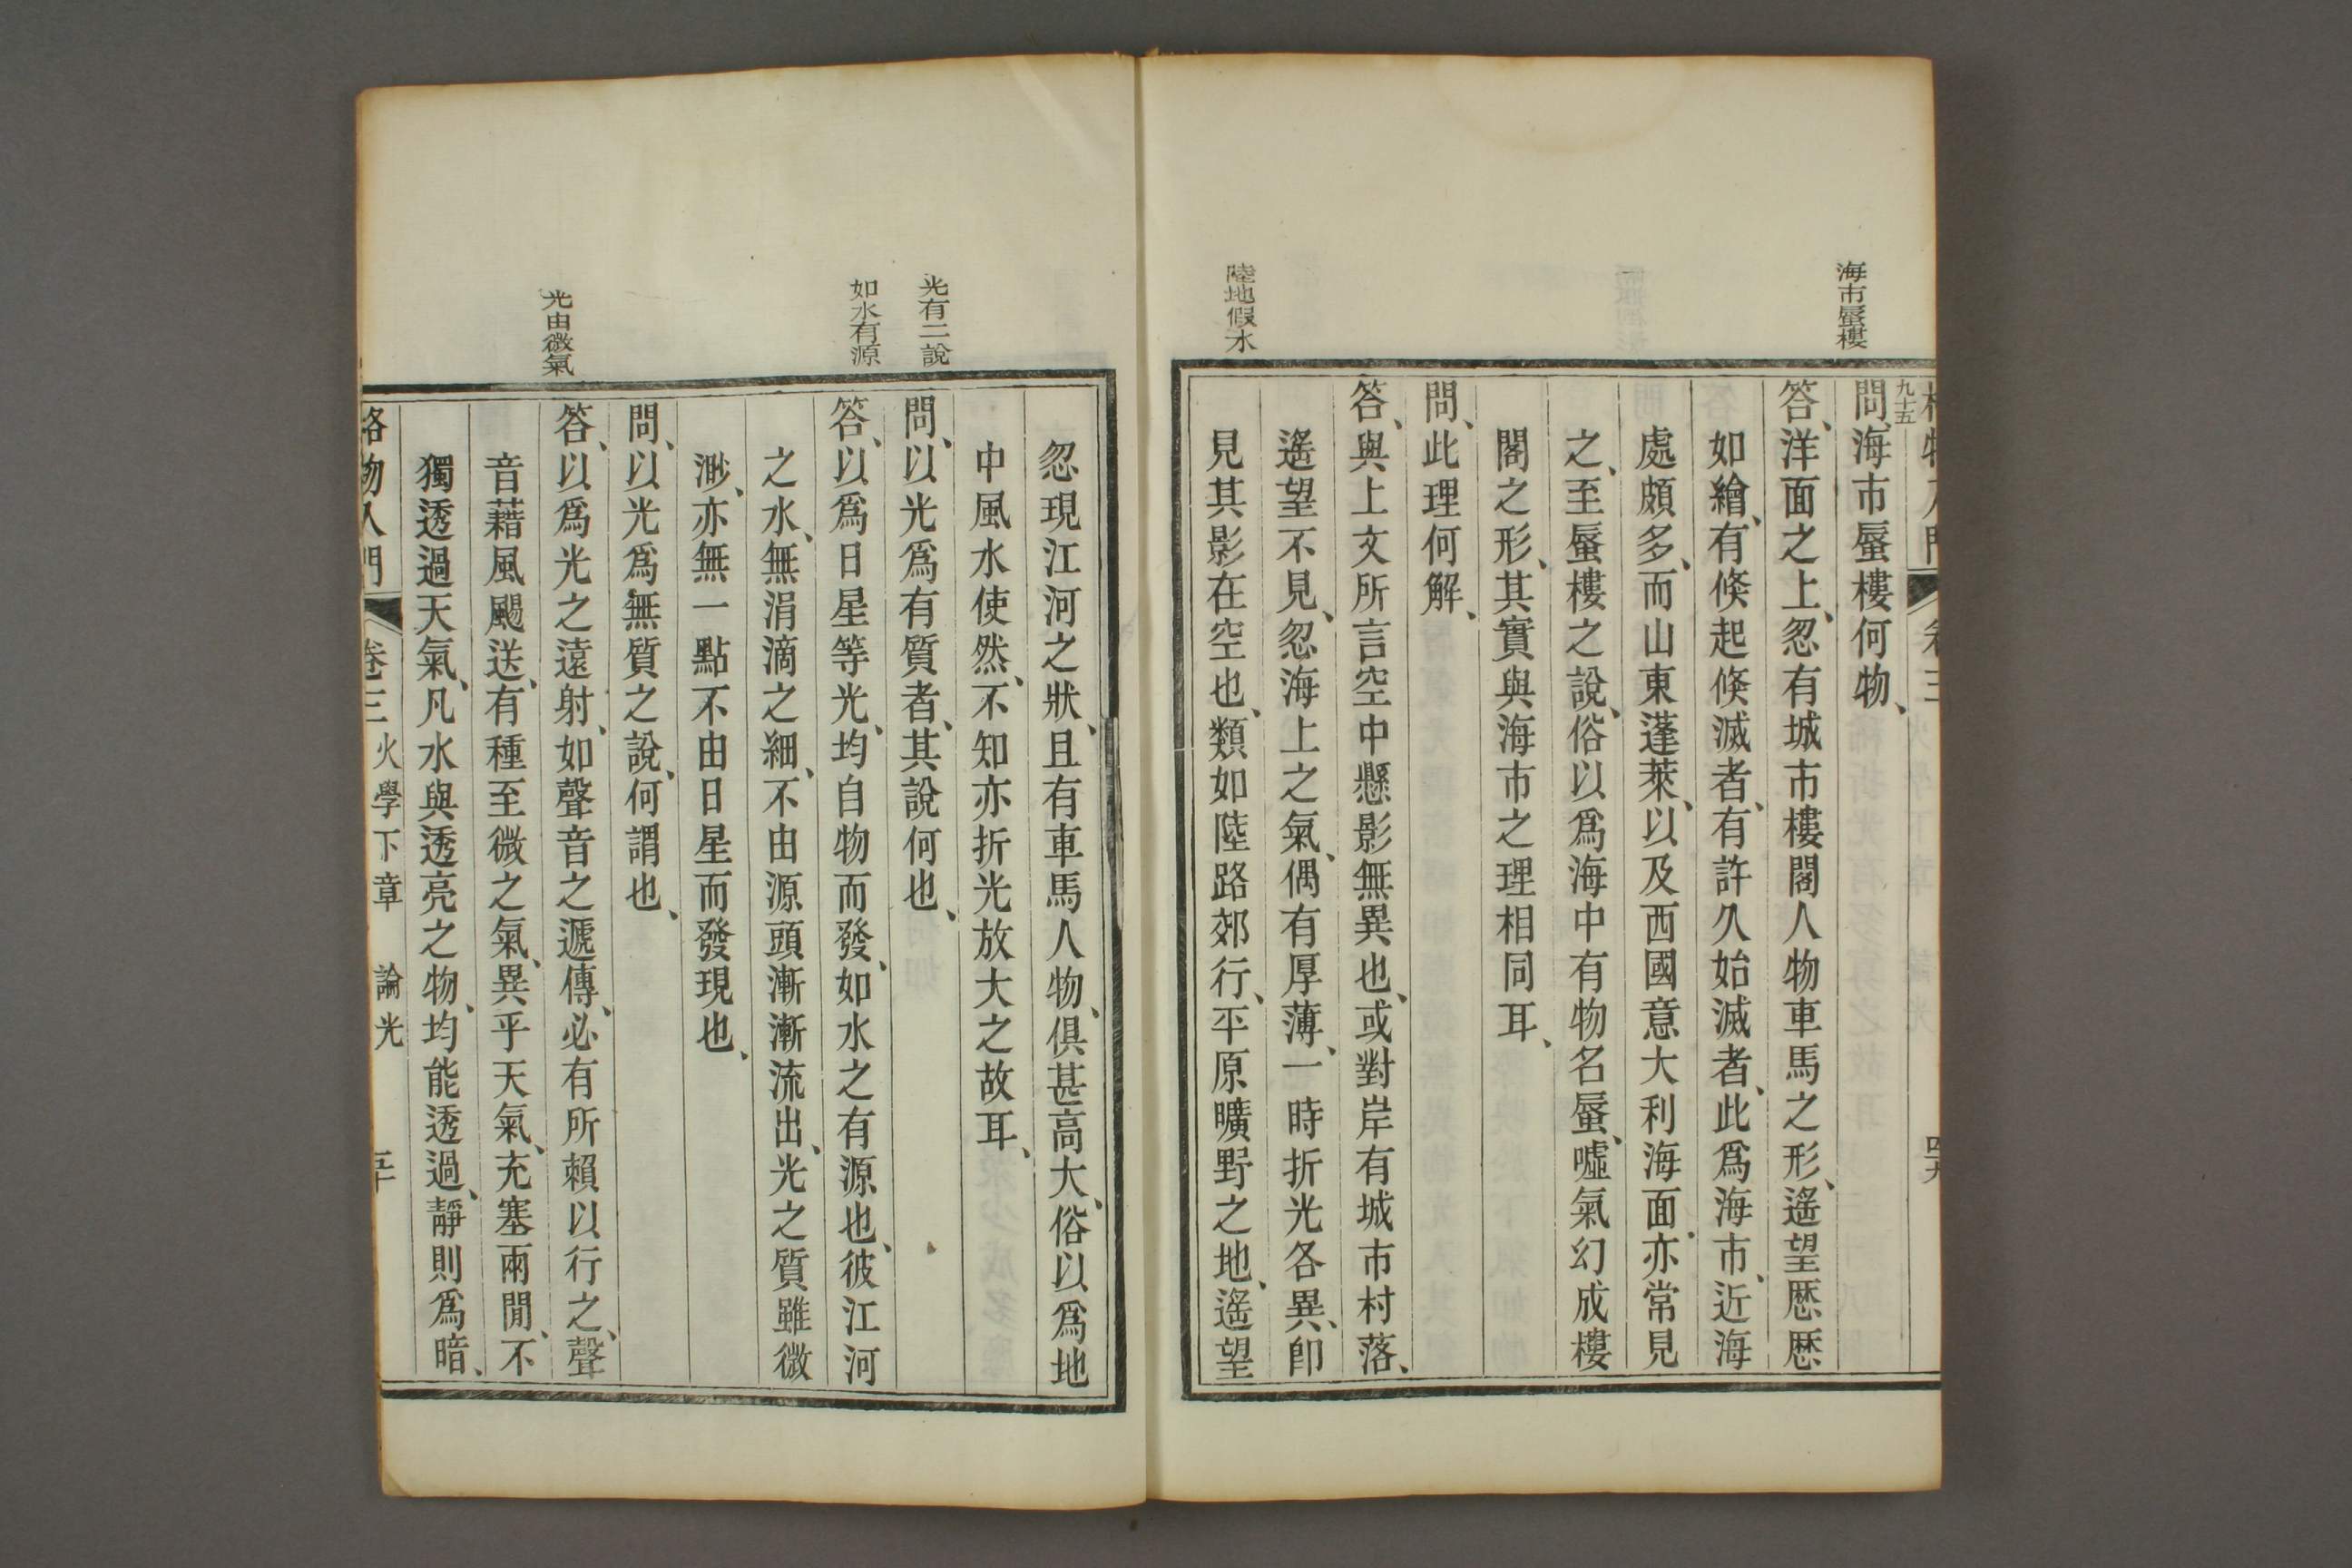 海市蜃樓
陸地假水
格物入門 卷三 四十九
九十五
問、海市蜃樓何物、
答、洋面之上、忽有城市樓閣人物車馬之形、遙望歷歷
如繪、有倐起倐滅者、有許久始滅者、此爲海市、近海
處頗多、而山東蓬萊、以及西國意大利海面、亦常見
之、至蜃樓之說、俗以爲海中有物名蜃、噓氣幻成樓
閣之形、其實與海市之理相同耳、
問、此理何解、
答、與上文所言空中懸影無異也、或對岸有城市村落、
遙望不見、忽海上之氣、偶有厚薄、一時折光各異、卽
見其影在空也、類如陸路郊行、平原曠野之地、遙望
光有二說
如水有源
光由微氣
忽現江河之狀、且有車馬人物、俱甚高大、俗以爲地
中風水使然、不知亦折光放大之故耳、
問、以光爲有質者、其說何也、
答、以爲日星等光、均自物而發、如水之有源也、彼江河
之水、無涓滴之細、不由源頭漸漸流出、光之質雖微
渺、亦無一點不由日星而發現也、
問、以光爲無質之說、何謂也、
答、以爲光之遠射、如聲音之遞傳、必有所賴以行之、聲
音藉風颺送、有種至微之氣、異乎天氣、充塞兩閒、不
獨透過天氣、凡水與透亮之物、均能透過、靜則爲暗、
格物入門 卷三 火學下章 論光 五十